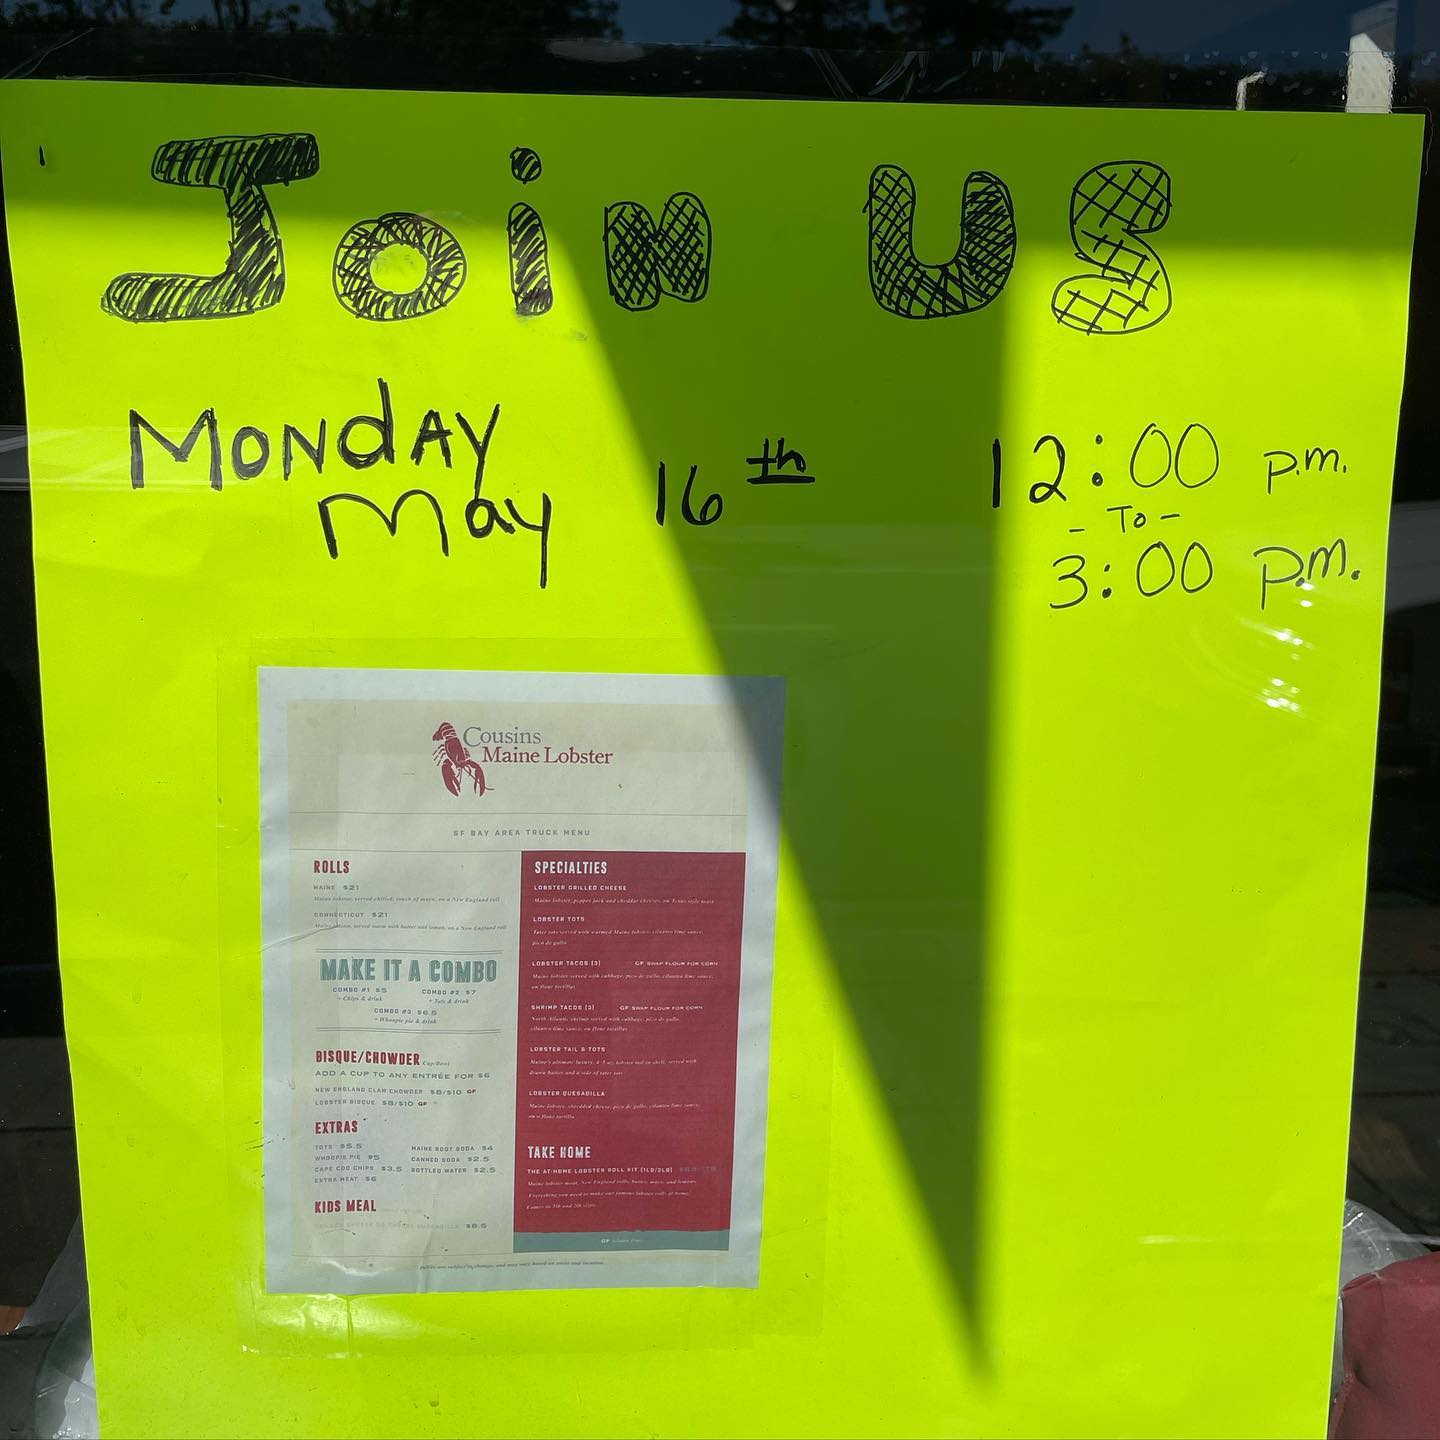 Join US
Monday
May 16th
12:00 p.m.
- To -
3:00 p.m.
Cousins
Maine Lobster
SF BAY AREA TRUCK MENU
ROLLS
MAINE $21
Maine lobster, served chilled, touch of mayo, on a New England roll
CONNECTICUT $21
Maine lobster, served warm with butter and lemon, on a New England roll
MAKE IT A COMBO
COMBO #1 $5
+ Chips & drink
COMBO #2 $7
+ Tots & drink
COMBO #3 $6.5
+ Whoopie pie & drink
BISQUE/CHOWDER Cup/Bowl
ADD A CUP TO ANY ENTRÉE FOR $6
NEW ENGLAND CLAM CHOWDER $8/$10 GF
LOBSTER BISQUE $8/$10 GF
EXTRAS
TOTS $5.5
WHOOPIE PIE $5
CAPE COD CHIPS $3.5
EXTRA MEAT $6
MAINE ROOT SODA $4
CANNED SODA $2.5
BOTTLED WATER $2.5
KIDS MEAL
GRILLED CHEESE OR CHEESE QUESADILLA $8.5
SPECIALTIES
LOBSTER GRILLED CHEESE
Maine lobster, pepper jack and cheddar cheeses, on Texas style toast
LOBSTER TOTS
Tater tots served with warmed Maine lobster, cilantro lime sauce,
pico de gallo
LOBSTER TACOS (3) GF SWAP FLOUR FOR CORN
Maine lobster served with cabbage, pico de gallo, cilantro lime sauce,
on flour tortillas
SHRIMP TACOS (3) GF SWAP FLOUR FOR CORN
North Atlantic shrimp served with cabbage, pico de gallo,
cilantro lime sauce, on flour tortillas
LOBSTER TAIL & TOTS
Maine's ultimate luxury, 4-5 oz lobster tail in shell, served with
drawn butter and a side of tater tots
LOBSTER QUESADILLA
Maine lobster, shredded cheese, pico de gallo, cilantro lime sauce,
on a flour tortilla
TAKE HOME
THE AT-HOME LOBSTER ROLL KIT (1LB/2LB)
Maine lobster meat, New England rolls, butter, mayo, and lemons.
Everything you need to make our famous lobster rolls at home!
Comes in 1lb and 2lb sizes.
GF Gluten Free
prices are subject to change, and may vary based on event and location.